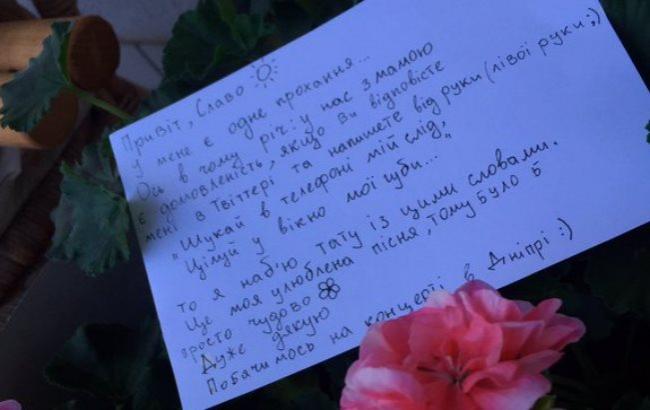 Привіт, Славо
У мене є одне прохання...
Ось в чому річ: у нас з мамою
є домовленість, якщо Ви відповісте
мені в Твіттері та напишете від руки (лівої руки ;)
"Шукай в телефоні мій слід,
Цілуй у вікно мої губи...
то я наб'ю тату із цими словами.
Це моя улюблена пісня, тому було б
просто чудово
Дуже дякую
Побачимось на концерті в Дніпрі :)